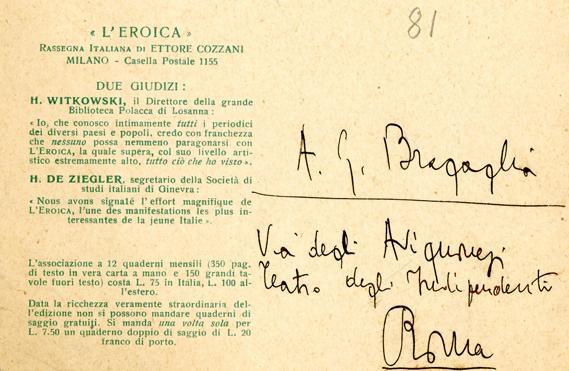 « L'EROICA »
RASSEGNA ITALIANA DI ETTORE COZZANI
MILANO - Casella Postale 1155
DUE GIUDIZI :
H. WITKOWSKI, il Direttore della grande
Biblioteca Polacca di Losanna :
« Io, che conosco intimamente tutti i periodici
dei diversi paesi e popoli, credo con franchezza
che nessuno possa nemmeno paragonarsi con
L'EROICA, la quale supera, col suo livello arti-
stico estremamente alto, tutto ciò che ho visto ».
H. DE ZIEGLER, segretario della Società di
studi italiani di Ginevra :
« Nous avons signalé l'effort magnifique de
L'EROICA, l'une des manifestations les plus in-
téressantes de la jeune Italie ».
L'associazione a 12 quaderni mensili (350 pag.
di testo in vera carta a mano e 150 grandi ta-
vole fuori testo) costa L. 75 in Italia, L. 100 al-
l'estero.
Data la ricchezza veramente straordinaria del-
l'edizione non si possono mandare quaderni di
saggio gratuiti. Si manda una volta sola per
L. 7.50 un quaderno doppio di saggio di L. 20
franco di porto.
81
A. G. Bragaglia
Via degli Avignonesi
Teatro degli Indipendenti
Roma